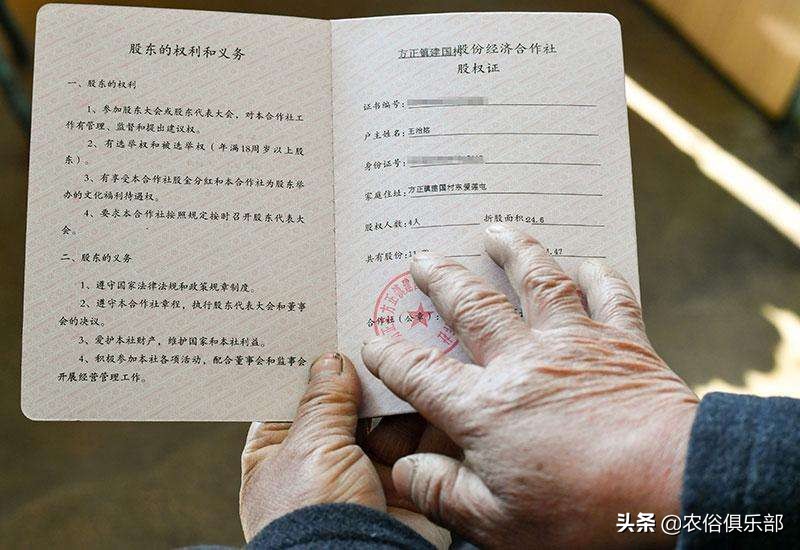 股东的权利和义务
一、股东的权利
1、参加股东大会或股东代表大会，对本合作社工
作有管理、监督和提出建议权。
2、有选举权和被选举权（年满18周岁以上股
东）。
3、有享受本合作社股金分红和本合作社为股东举
办的文化福利待遇权。
4、要求本合作社按照规定按时召开股东代表大
会。
二、股东的义务
1、遵守国家法律法规和政策规章制度。
2、遵守本合作社章程，执行股东代表大会和董事
会的决议。
3、爱护本社财产，维护国家和本社利益。
4、积极参加本社各项活动，配合董事会和监事会
开展经营管理工作。
方正镇建国村股份经济合作社
股权证
证书编号：
户主姓名：王治格
身份证号：
家庭住址：方正镇建国村东
股权人数：4人 折股面积：24.6
共有股份：
合作社（公章）：
头条 @农俗俱乐部